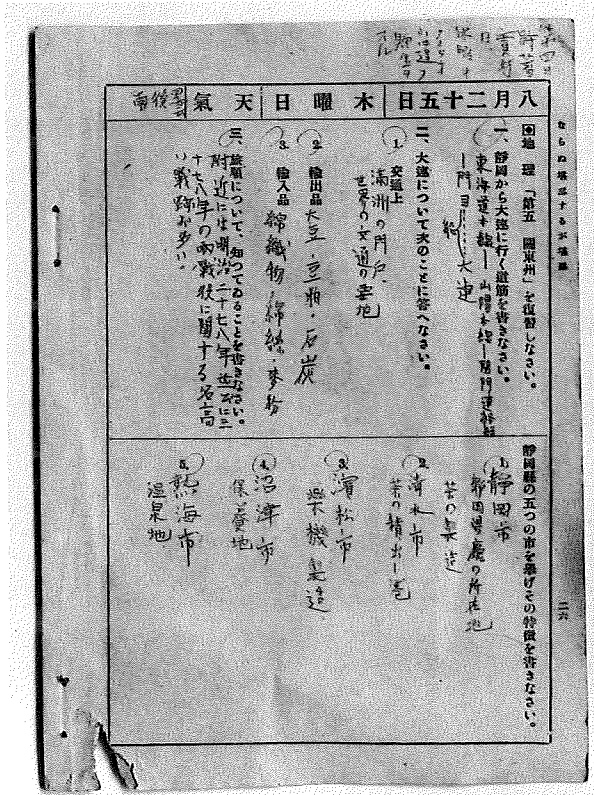 八月二十五日
木曜日
天氣
後雨
地理「第五 關東州」を復習しなさい。
一、靜岡から大連に行く道筋を書きなさい。
東海道本線ー山陽本線ー關門連絡船
ー門司ー大連
二、大連について次のことに答へなさい。
1. 交通上
滿洲の門戶
世界の交通の要地
2. 輸出品
大豆・豆粕・石炭
3. 輸入品
綿織物・綿絲・麥粉
三、旅順について、知つてゐることを書きなさい。
附近には明治二十七八年
十七八年の兩戰役に關する名高
い戰跡が多い。
靜岡縣の五つの市を擧げその特徵を書きなさい。
1. 靜岡市
靜岡縣廳の所在地
茶の製造
2. 清水市
茶の積出し港
3. 濱松市
樂機製造
4. 沼津市
保養地
5. 熱海市
溫泉地
二六